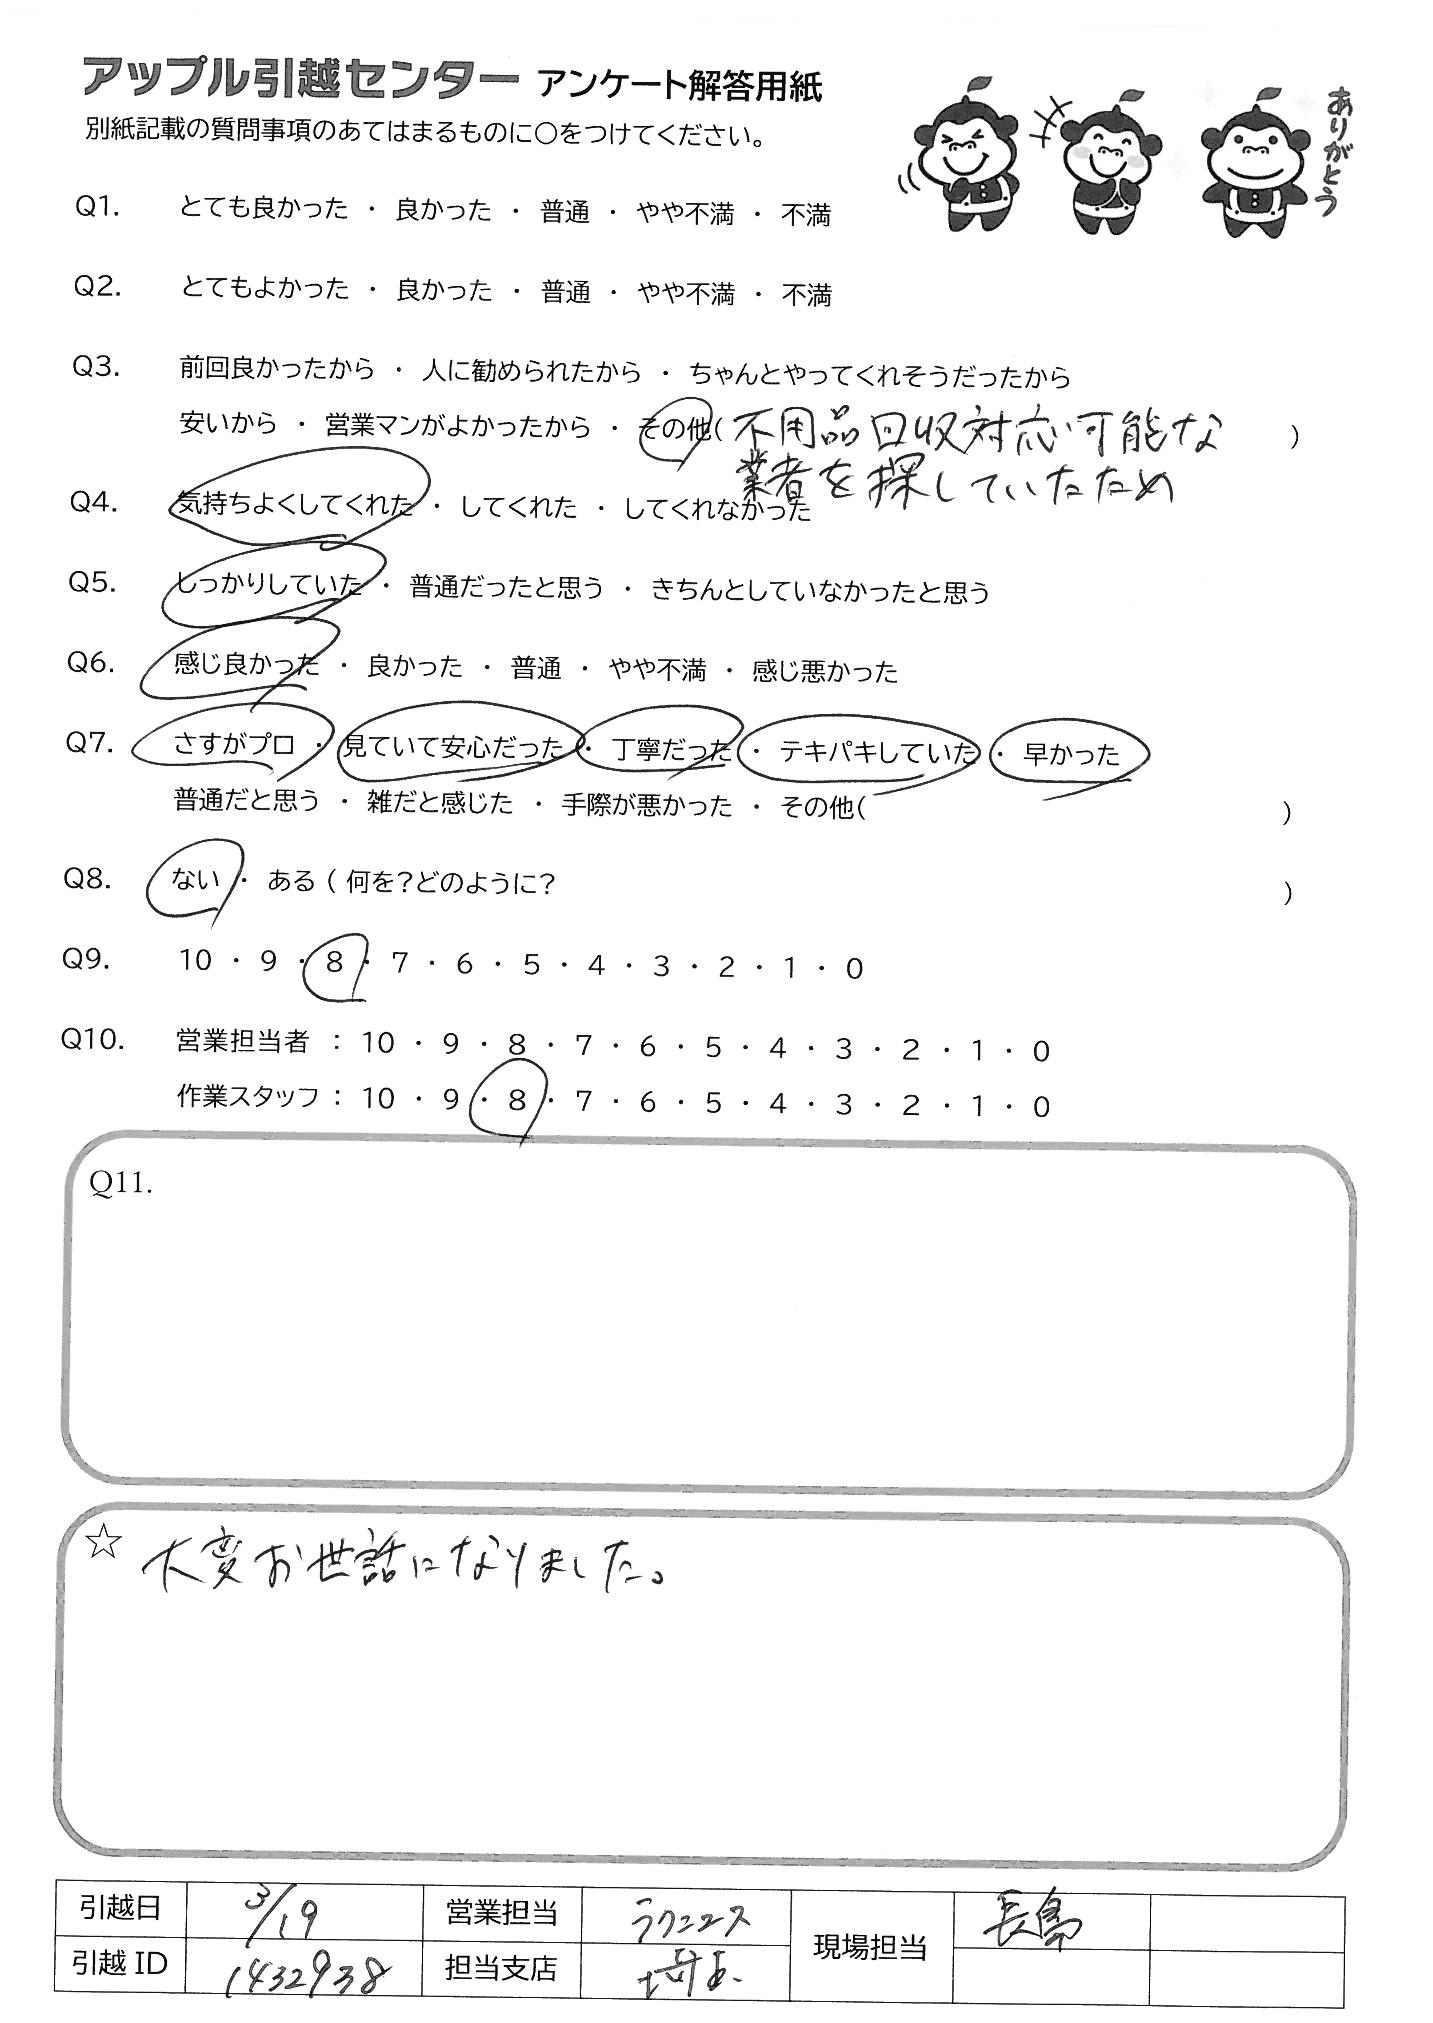 アップル引越センター アンケート解答用紙
ありがとう
別紙記載の質問事項のあてはまるものに○をつけてください。
Q1. とても良かった ・ 良かった ・ 普通 ・ やや不満 ・ 不満
Q2. とてもよかった ・ 良かった ・ 普通 ・ やや不満 ・ 不満
Q3. 前回良かったから ・ 人に勧められたから ・ ちゃんとやってくれそうだったから
安いから ・ 営業マンがよかったから ・ その他( 不用品回収対応可能な )
業者を探していたため
Q4. 気持ちよくしてくれた ・ してくれた ・ してくれなかった
Q5. しっかりしていた ・ 普通だったと思う ・ きちんとしていなかったと思う
Q6. 感じ良かった ・ 良かった ・ 普通 ・ やや不満 ・ 感じ悪かった
Q7. さすがプロ ・ 見ていて安心だった ・ 丁寧だった ・ テキパキしていた ・ 早かった
普通だと思う ・ 雑だと感じた ・ 手際が悪かった ・ その他( )
Q8. ない ・ ある ( 何を?どのように? )
Q9. 10 ・ 9 ・ 8 ・ 7 ・ 6 ・ 5 ・ 4 ・ 3 ・ 2 ・ 1 ・ 0
Q10. 営業担当者 : 10 ・ 9 ・ 8 ・ 7 ・ 6 ・ 5 ・ 4 ・ 3 ・ 2 ・ 1 ・ 0
作業スタッフ : 10 ・ 9 ・ 8 ・ 7 ・ 6 ・ 5 ・ 4 ・ 3 ・ 2 ・ 1 ・ 0
Q11.
☆ 大変お世話になりました。
引越日 3/19 営業担当 ラクニコス 現場担当 長島
引越 ID 1432938 担当支店 埼玉